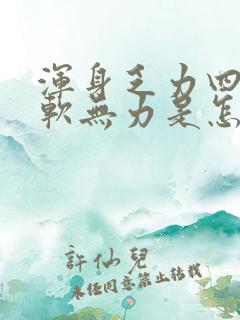 渾身乏力四
軟無力是怎
許仙兒
未经同意禁止转载